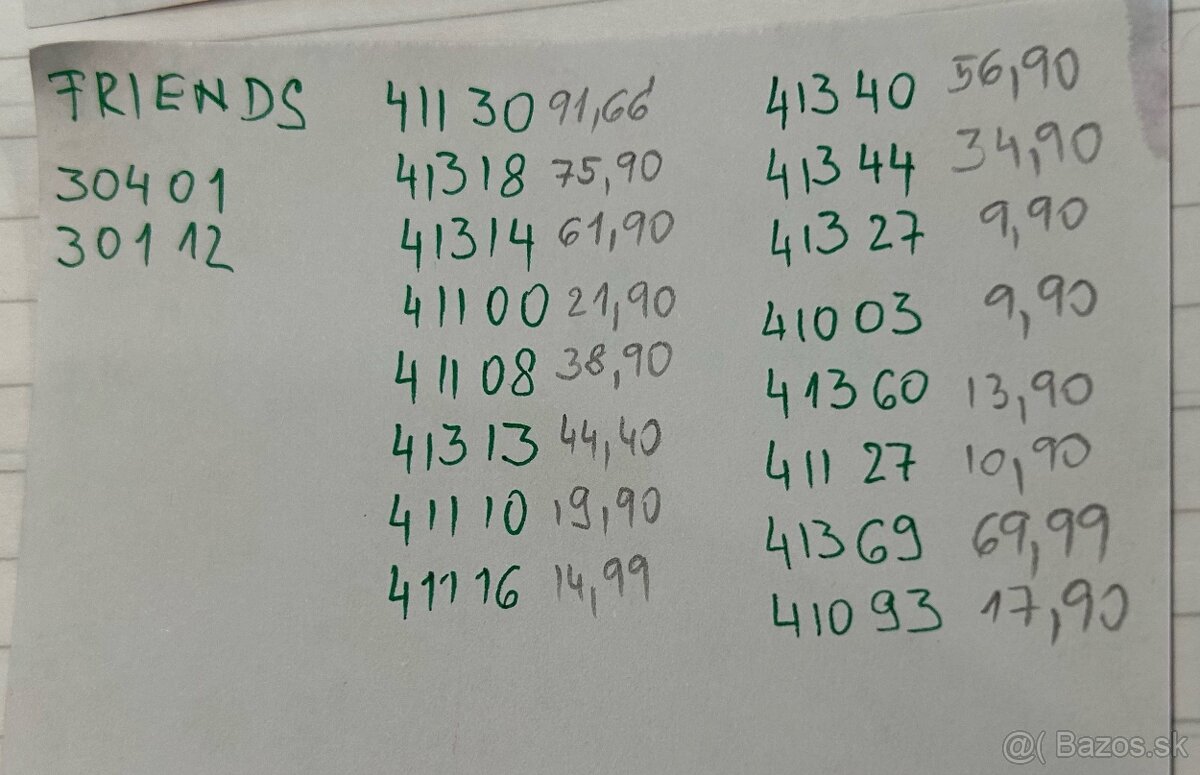 FRIENDS
30401
30112
41130 91,66
41318 75,90
41314 61,90
41100 21,90
41108 38,90
41313 44,40
41110 19,90
41116 14,99
41340 56,90
41344 34,90
41327 9,90
41003 9,90
41360 13,90
41127 10,90
41369 69,99
41093 17,90
@( Bazos.sk